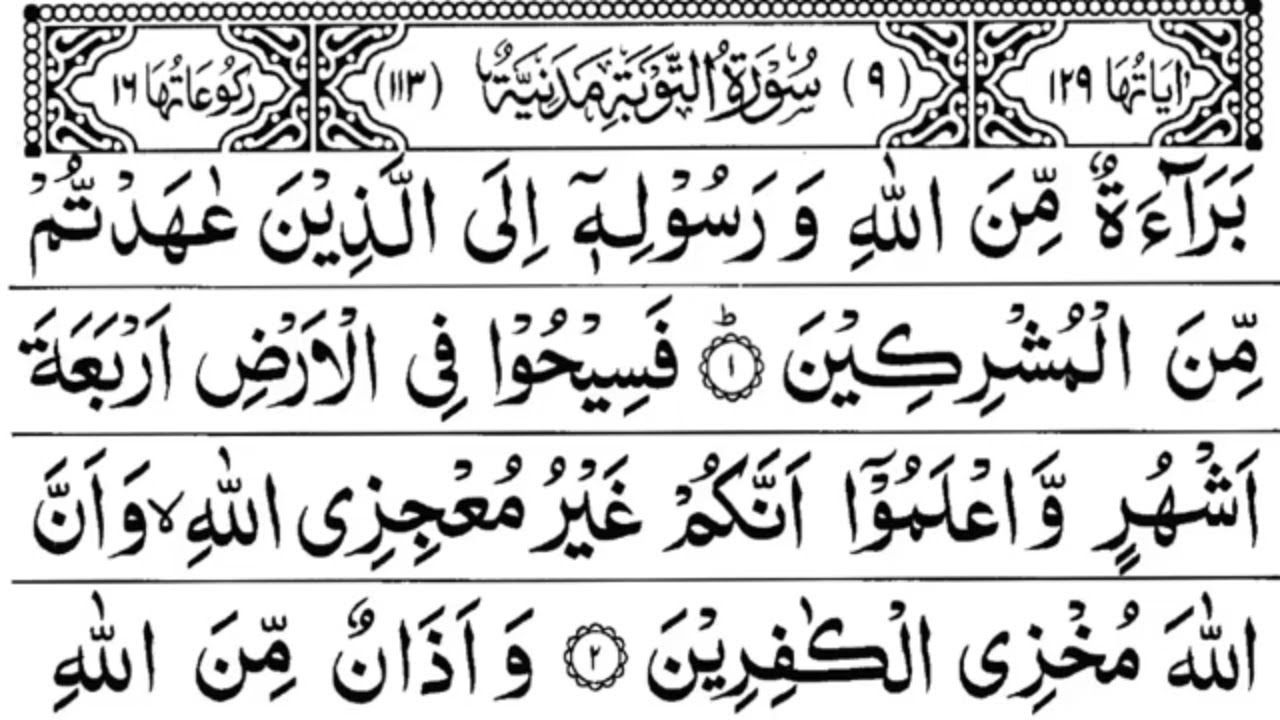 اٰيَاتُهَا ١٢٩ (٩) سُوْرَةُ التَّوْبَةِ مَدَنِيَّةٌ (١١٣) رُكُوْعَاتُهَا ١٦
بَرَآءَةٌ مِّنَ اللّٰهِ وَ رَسُوْلِهٖۤ اِلَى الَّذِيْنَ عٰهَدْتُّمْ
مِّنَ الْمُشْرِكِيْنَ ؕ ١ فَسِيْحُوْا فِي الْاَرْضِ اَرْبَعَةَ
اَشْهُرٍ وَّ اعْلَمُوْۤا اَنَّكُمْ غَيْرُ مُعْجِزِی اللّٰهِ ۙ وَ اَنَّ
اللّٰهَ مُخْزِی الْكٰفِرِيْنَ ٢ وَ اَذَانٌ مِّنَ اللّٰهِ